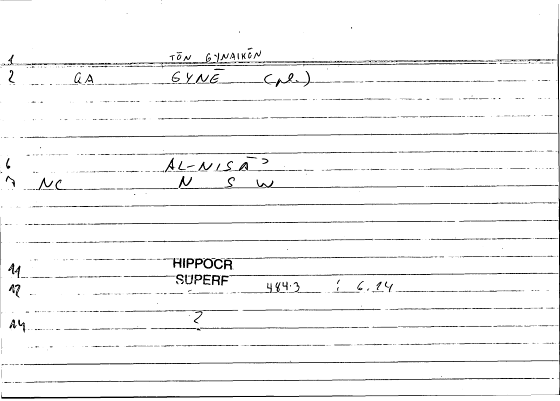 1 TŌN GYNAIKŌN
2 GA GYNĒ (pl.)
6 AL-NISĀʾ
7 NC N S W
11 HIPPOCR
12 SUPERF 484.3 : 6.14
14 2